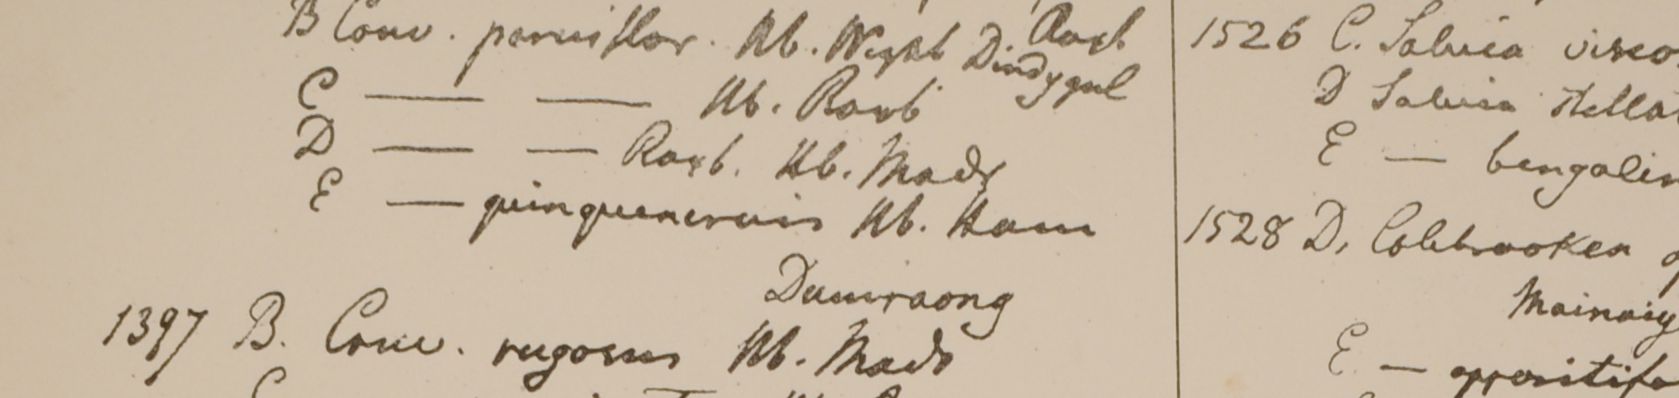 B Conv. parviflor. Hb. Wight D. Roxb
Dindygul
C — — Hb. Roxb
D — — Roxb. Hb. Madr
E — quinquenervis Hb. Ham
Dumraong
1397 B. Conv. rugosus Hb. Madr
C
1526 C. Salvia visco
D Salvia stella
E — bengalen
1528 D. Colebrookea
Mainaig
E — oppositifo